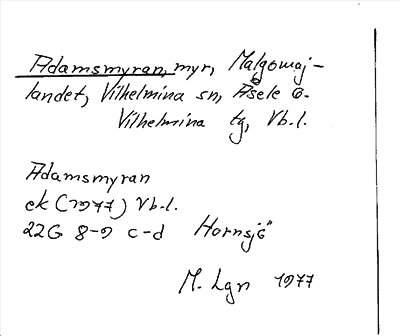 Adamsmyran, myr, Malgomaj-
landet, Vilhelmina sn, Åsele o.
Vilhelmina tg, Vb.l.
Adamsmyran
ek (1977) Vb.l.
22G 8-9 c-d Hornsjö
M. Lgn 1977